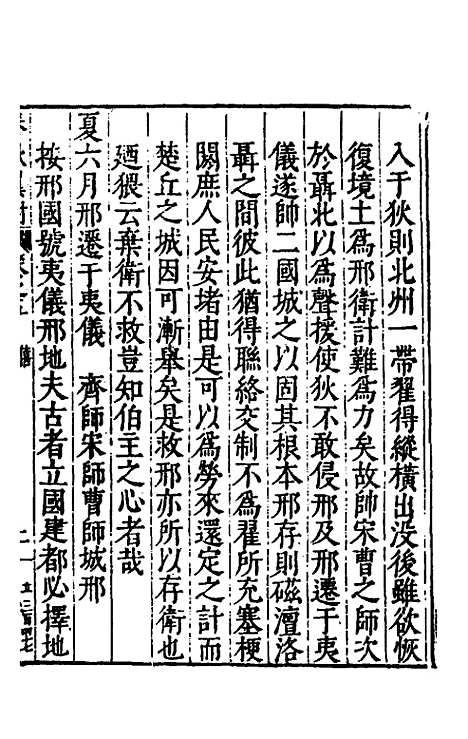 入于狄則北州一帶翟得縱橫出没後雖欲恢
復境土爲邢衛計難爲力矣故帥宋曹之師次
於聶北以爲聲援使狄不敢侵邢及邢遷于夷
儀遂帥二國城之以固其根本邢存則磁澶洛
聶之間彼此猶得聯絡交制不爲翟所充塞梗
閡庶人民安堵由是可以爲勞來還定之計而
楚丘之城因可漸舉矣是救邢亦所以存衛也
廼猥云棄衛不救豈知伯主之心者哉
夏六月邢遷于夷儀 齊師宋師曹師城邢
按邢國號夷儀邢地夫古者立國建都必擇地